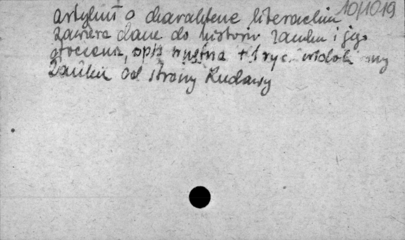 10/1019
artykuł o charakterze literackim.
Zawiera dane do historii zamku i jego
otoczenia, opis wnętrza + 1 ryc.: widok ruiny
Zamku od strony Rudawy